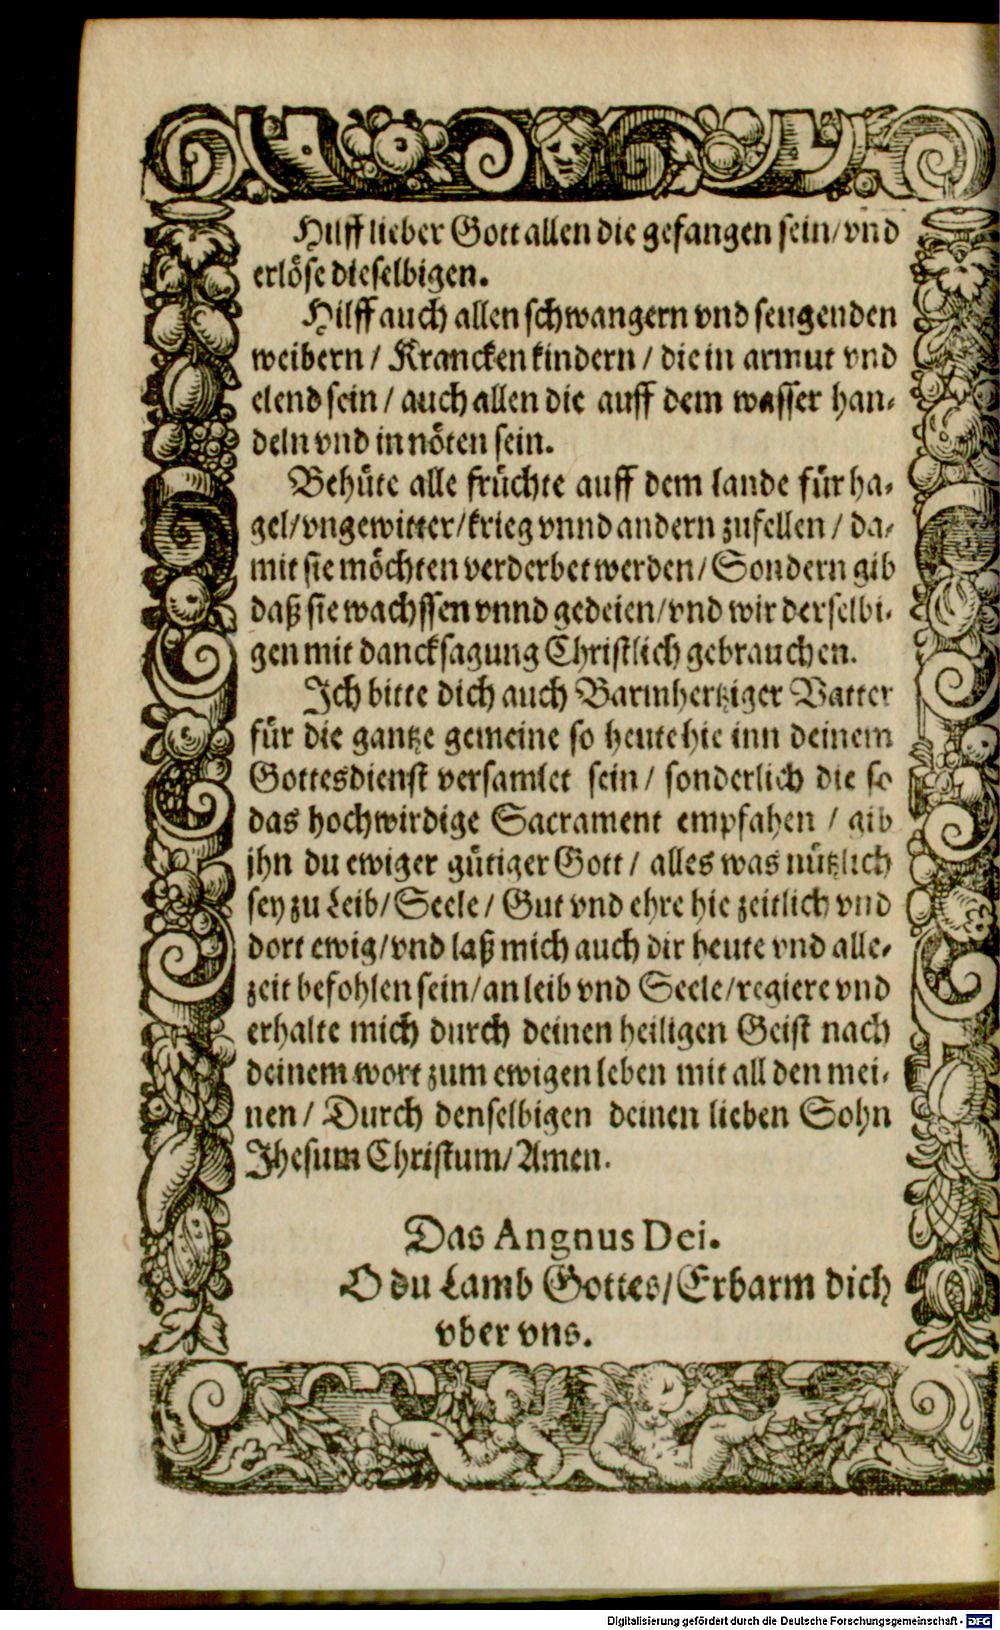 Hilff lieber Gott allen die gefangen sein/ vnd
erlöse dieselbigen.
Hilff auch allen schwangern vnd seugenden
weibern / Krancken kindern / die in armut vnd
elend sein / auch allen die auff dem wasser han-
deln vnd in nöten sein.
Behüte alle früchte auff dem lande für ha-
gel/ vngewitter/ krieg vnnd andern zufellen / da-
mit sie möchten verderbet werden/ Sondern gib
daß sie wachssen vnnd gedeien/ vnd wir derselbi-
gen mit dancksagung Christlich gebrauchen.
Ich bitte dich auch Barmhertziger Vatter
für die gantze gemeine so heute hie inn deinem
Gottesdienst versamlet sein/ sonderlich die so
das hochwirdige Sacrament empfahen / gib
jhn du ewiger gütiger Gott / alles was nützlich
sey zu Leib/ Seele/ Gut vnd ehre hie zeitlich vnd
dort ewig/ vnd laß mich auch dir heute vnd alle-
zeit befohlen sein/ an leib vnd Seele/ regiere vnd
erhalte mich durch deinen heiligen Geist nach
deinem wort zum ewigen leben mit all den mei-
nen/ Durch denselbigen deinen lieben Sohn
Jhesum Christum/ Amen.
Das Angnus Dei.
O du Lamb Gottes/ Erbarm dich
vber vns.
Digitalisierung gefördert durch die Deutsche Forschungsgemeinschaft - DFG